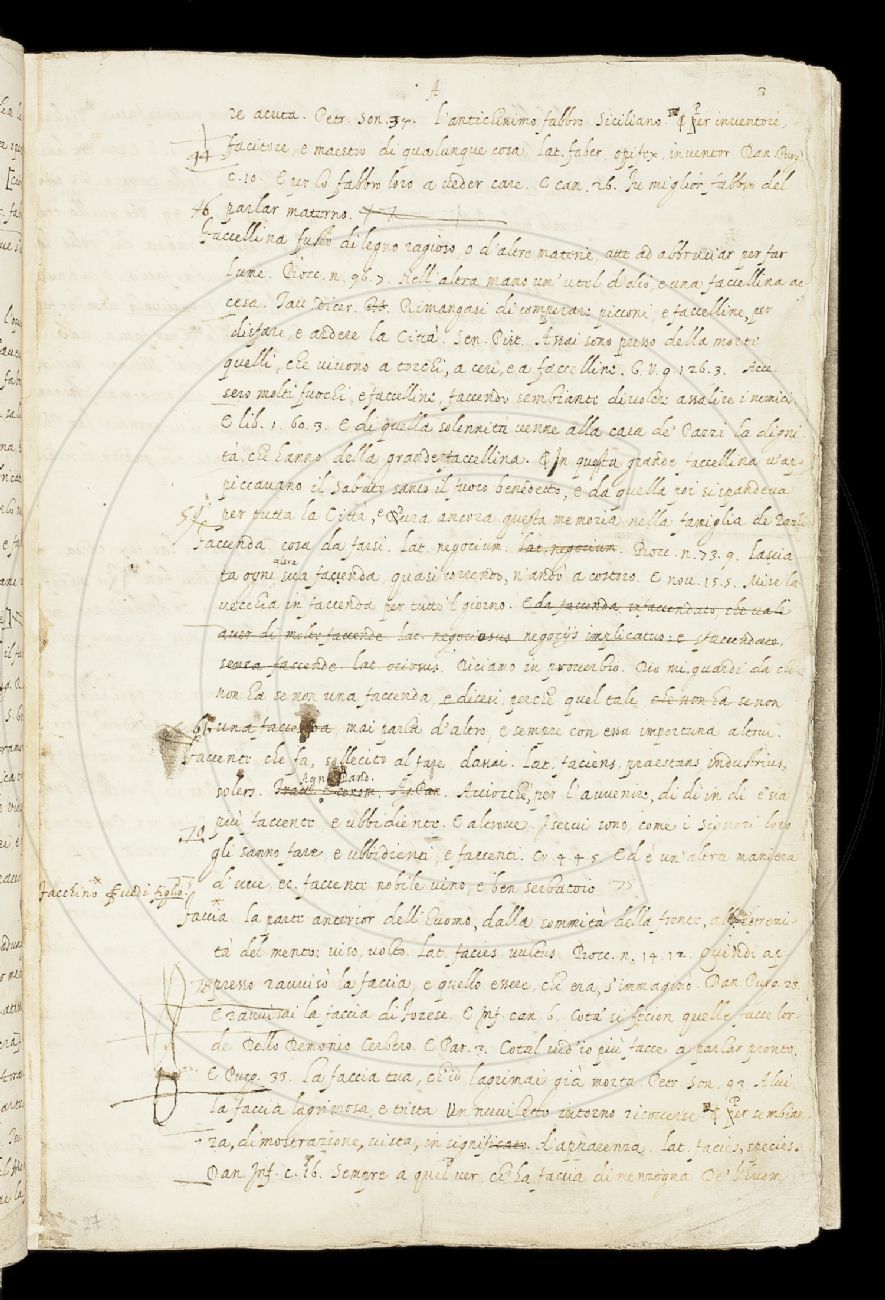 A 3
re acuta. Petr. Son. 34. l'antichissimo fabbro Siciliano. ¶ Per inventore,
44 facitore, e maestro di qualunque cosa. Lat. faber, opifex, inventor. Dan. Purg.
C. 10. E per lo fabbro loro a veder care. E can. 26. Fu miglior fabbro del
46 parlar materno.
Faccellina fusto di legno ragioso, o d'altre materie, atte ad abbruciar per far
lume. Bocc. n. 96. 7. Nell'altra mano un'utel d'olio, e una faccellina ac
cesa. Tav. Dicer. Rimangasi di comperare picconi, e faccelline, per
disfare, e ardere la Città. Sen. Pist. Assai sono presso della morte
quelli, che vivono a torchi, a ceri, e a faccelline. G. V. 9. 126. 3. Acce
sero molti fuochi, e faccelline, facendo sembiante di volere assalire i nemici
E lib. 1. 60. 3. E di quella solennità venne alla casa de' Pazzi la digni
tà, che hanno della grande faccellina. In questa grande faccellina v'ap
piccavano il Sabato santo il fuoco benedetto, e da quella poi si spandeva
51 per tutta la Città, e dura ancora questa memoria nella famiglia de' Pazzi
Faccenda cosa da farsi. Lat. negocium. lat. negocium. Bocc. n. 73. 9. Lascia
ta ogni altra sua faccenda, quasi correndo, n'andò a costoro. E nov. 15. 5. Mise la
vecchia in faccenda per tutto 'l giorno. E da faccenda, infaccendato, che vale
aver di molte faccende lat. negociosus negocijs implicatus: e sfaccendato,
senza faccende. lat. ociosus. Diciamo in proverbio. Dio mi guardi da chi
non ha se non una faccenda, e dicesi, perche quel tale, che non ha se non
una faccenda, mai parla d'altro, e sempre con essa importuna altrui.
Faccente che fa, sollecito al fare, darai. Lat. faciens, praestans industrius,
solers. Agn. Pand. Acciocchè, per l'avvenire, di dì in dì e' sia
più faccente e ubbidiente. E altrove. I servi sono, come i Signori loro
70 gli sanno fare, e ubbidienti, e faccenti. Cr. 4. 4. 5. Ed è un'altra maniera
d'uve, ec. faccente nobile vino, e ben serbatoio. 75
Facchino vedi figlio
Faccia la parte anterior dell'huomo, dalla sommità della fronte, all'estremi
tà del mento: viso, volto. Lat. facies vultus. Bocc. n. 14. 12. Quindi ap
78 presso ravvisò la faccia, e quello essere, che era, s'immaginò. Dan. Purg. 23.
E ravvisai la faccia di Forese. E Inf. can. 6. Cotà si fecion quelle facce lor
de Dello Demonio Cerbero. E Par. 3. Cotal vid'io più facce a parlar pronte.
E Purg. 33. La faccia tua, ch'io lagrimai già morta. Petr. Son. 93. A lui
la faccia lagrimosa, e trista Un nuviletto intorno ricoverse ¶ Per sembian
za, dimostrazione, vista, d'apparenza. Lat. facies, species.
Dan. Inf. c. 16. Sempre a quel ver, c'ha faccia di menzogna De' l'huom
27